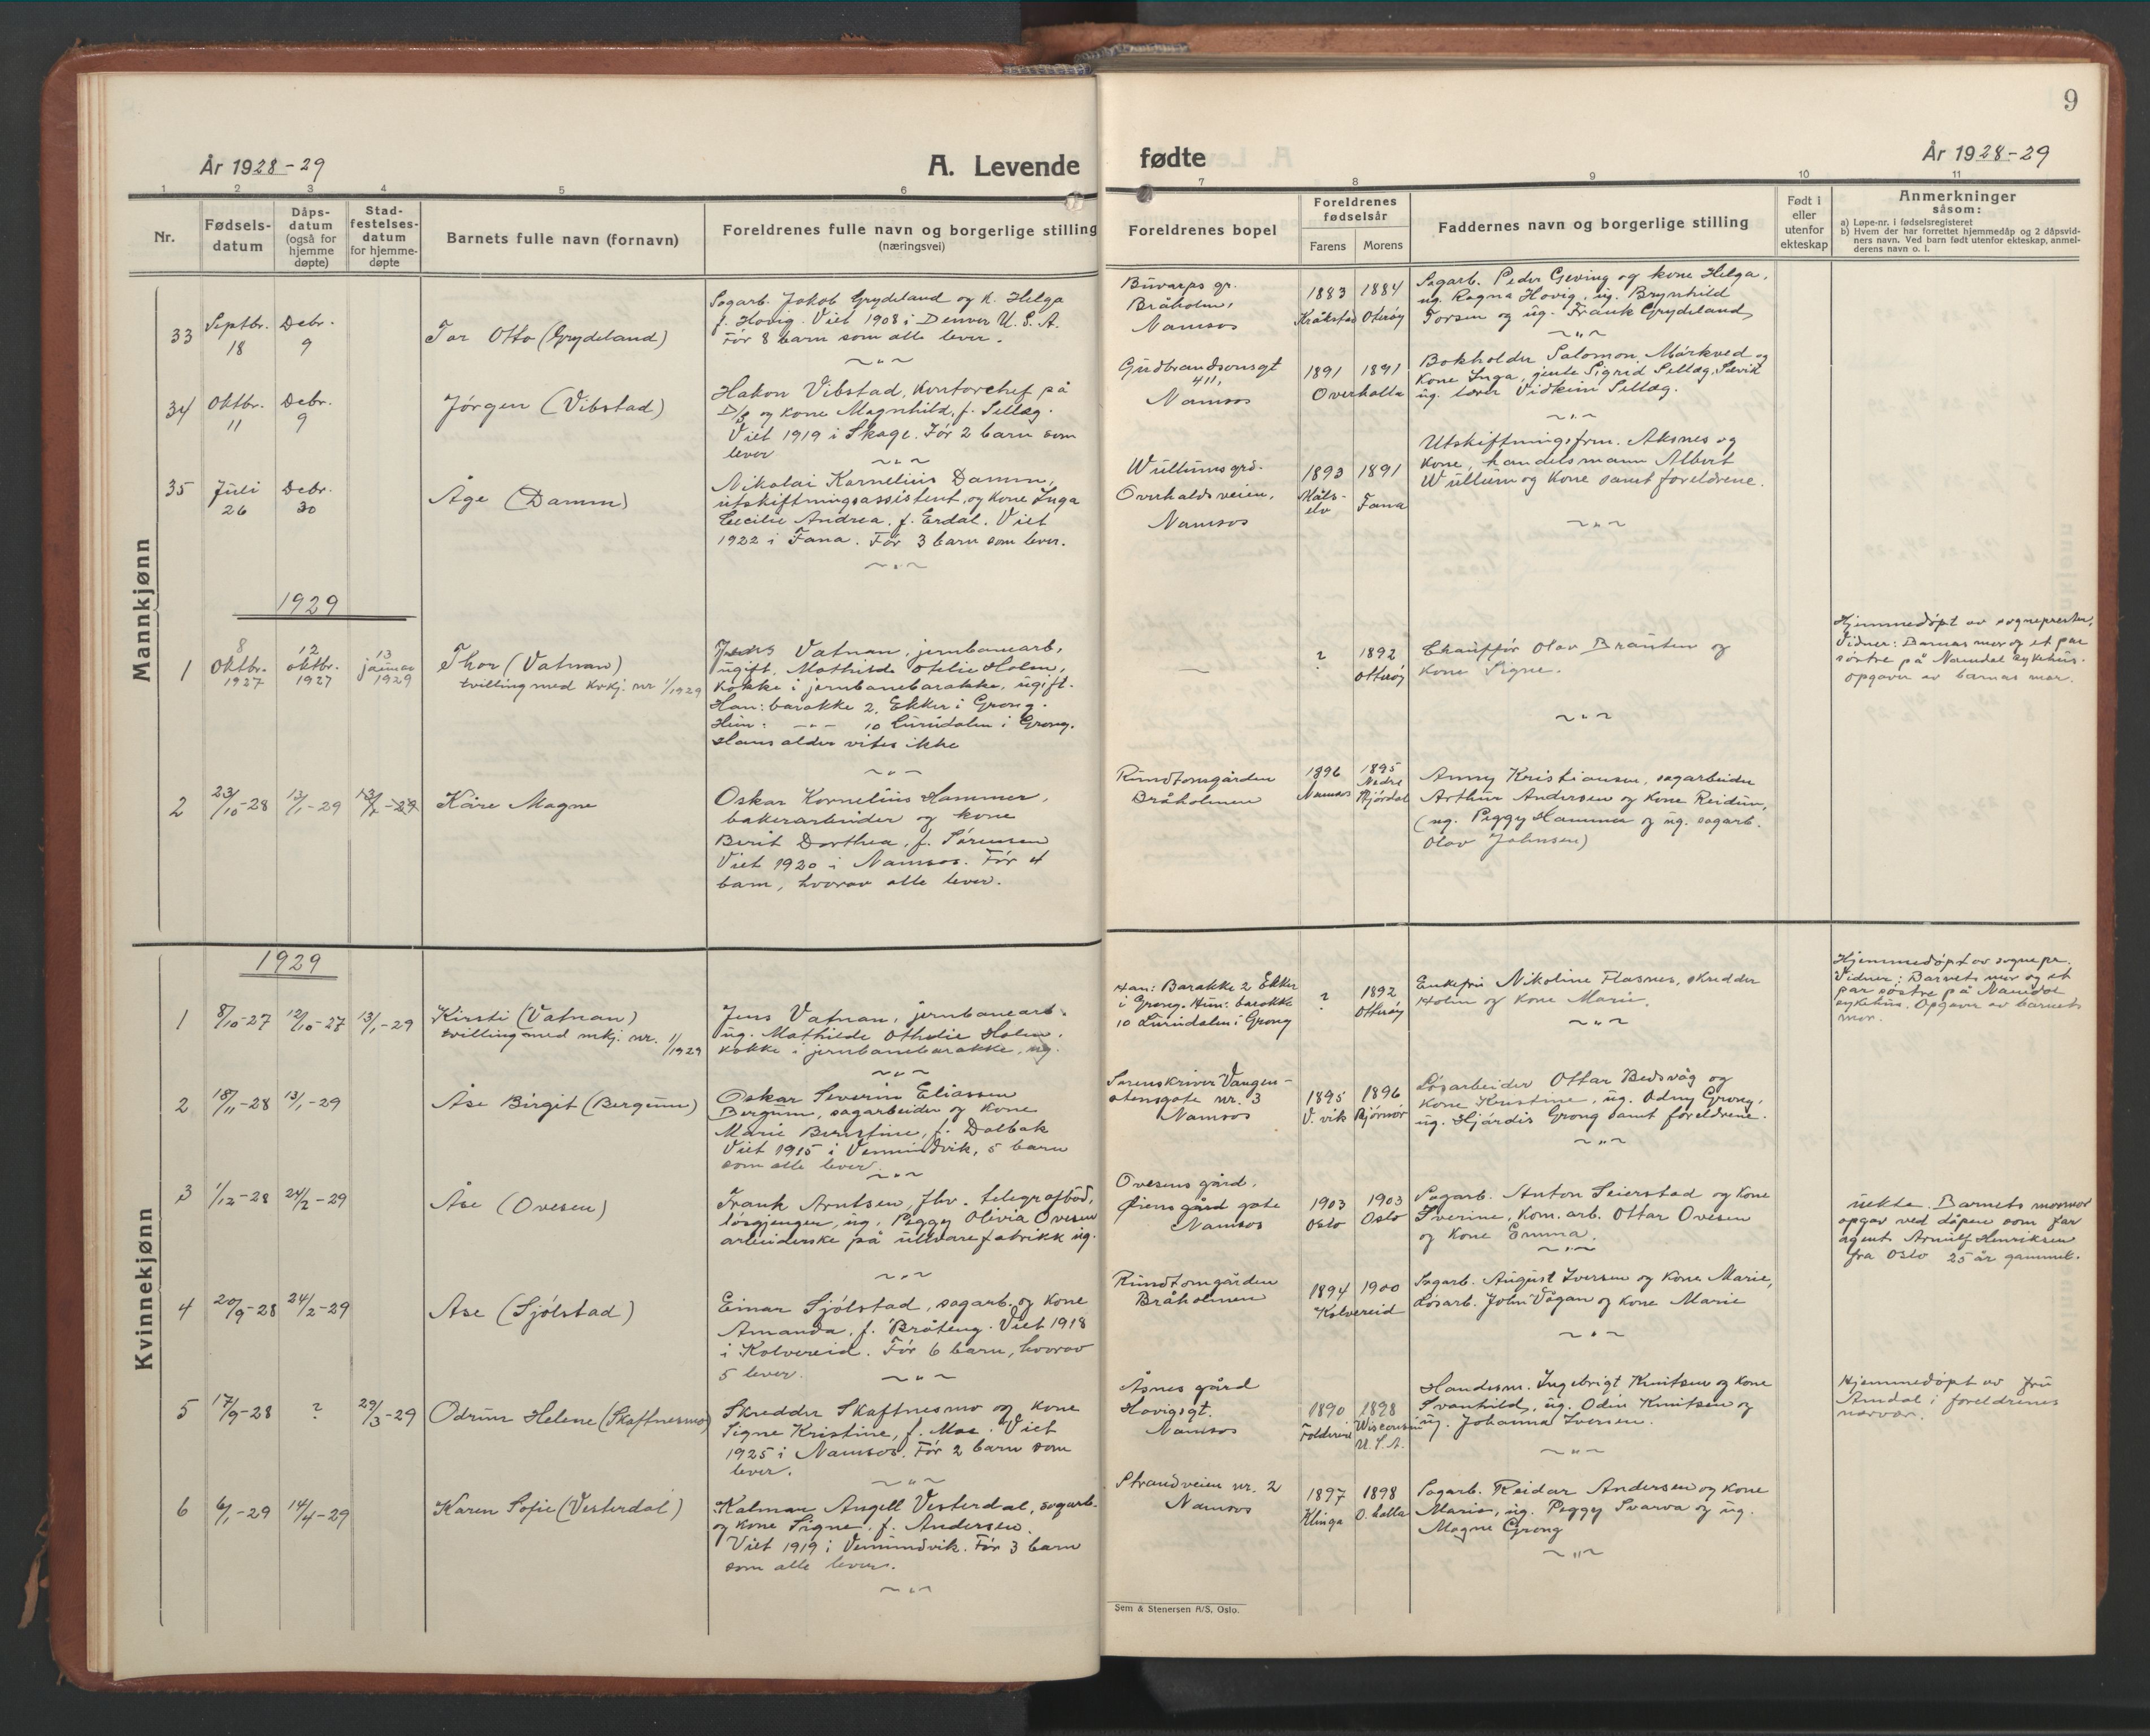 9
År 1928-29
A. Levende
fødte
År 1928-29
1 2 3 4 5 6 7 8 9 10 11
Nr.
Fødsels-
datum
Dåps-
datum
(også for
hjemme
døpte)
Stad-
festelses-
datum
for hjemme-
døpte
Barnets fulle navn (fornavn)
Foreldrenes fulle navn og borgerlige stilling
(næringsvei)
Foreldrenes bopel
Foreldrenes
fødselsår
Farens Morens
Faddernes navn og borgerlige stilling
Født i
eller
utenfor
ekteskap
Anmerkninger
såsom:
a) Løpe-nr. i fødselsregisteret
b) Hvem der har forrettet hjemmedåp og 2 dåpsvid-
ners navn. Ved barn født utenfor ekteskap, anmel-
derens navn o. l.
Mannkjønn
33
Septbr.
18
Debr.
9
Tor Otto (Grydeland)
Sagarb. Jakob Grydeland og k. Helga
f. Hovig. Viet 1908 i Denver U.S.A.
Før 8 barn som alle lever.
Bråholm,
Namsos
1883 1884
Kråkstad Oterøy
Sagarb. Peder Geving og kone Helga,
ug. Ragna Hovig, ug. Brynhild
Torsen og ug. Frank Grydeland
34
Oktbr.
11
Debr.
9
Jørgen (Vibstad)
Hakon Vibstad, kontorchef på
D/s og kone Magnhild, f. Selläg.
Viet 1919 i Skage. Før 2 barn som
lever
Gudbrandsonsgt
411,
Namsos
1891 1891
Overhalla
Bokholder Salomon Mørkved og
kone Inga, gjente Sigrid Sellæg, Sævik
ug. lærer Vidkunn Sellæg.
35
Juli
26
Debr.
30
Åge (Damm)
Nikolai Kornelius Damm,
utskiftningsassistent, og kone Inga
Cecilie Andrea, f. Erdal. Viet
1922 i Fana. Før 3 barn som lever.
Wullumsgrd.
Overhaldsveien,
Namsos
1893 1891
Måls-
elv Fana
Utskiftningsfrm. Aksnes og
kone, handelsmann Albert
Wullum og kone samt foreldrene.
1929
1
8
Oktbr.
1927
12
oktbr.
1927
13
januar
1929
Thor (Vatnan)
tvilling med kvkj. nr 1/1929
Jens Vatnan, jernbanearb,
ugift. Mathilde Otelie Holm,
kokke i jernbanebarakke, ugift.
Han: barakke 2, Ekker i Grong.
Hun: -"- 10 Lurudalen i Grong.
Hans alder vites ikke
? 1892
Otterøy
Chauffør Olav Brauten og
kone Signe.
Hjemmedøpt av sognepresten,
Vidner: Barnas mor og et par
søstre på Namdal sykehus.
opgaver av barnas mor.
2
23/10-28 13/1-29 13/1-29
Kåre Magne
Oskar Kornelius Hammer,
bakerarbeider og kone
Berit Dorthea, f. Sørensen
Viet 1920 i Namsos. Før 4
barn, hvorav alle lever.
Rundtomgården
Bråholmen
1896 1895
Namsos Nedre
Stjørdal
Anny Kristiansen, sagarbeider
Arthur Andersen og kone Reidun,
(ug. Peggy Hammer og ug. sagarb.
Olav Johnsen)
Kvinnekjønn
1929
1
8/10-27 12/10-27 13/1-29
Kirsti (Vatnan)
tvilling med mkj. nr. 1/1929
Jens Vatnan, jernbanearb.
ug. Mathilde Othelie Holm,
kokke i jernbanebarakke, ug.
Han: Barakke 2 Ekker
i Grong. Hun: barakke
10 Lurudalen i Grong
? 1892
Otterøy
Enkefru Nikoline Flasnes, skredder
Holm og kone Marie.
Hjemmedøpt av sognepr.
Vidner: Barnets mor og et
par søstre på Namdal
sykehus. Opgaver av barnets
mor.
2
18/11-28 13/1-29
Åse Birgit (Bergum)
Oskar Severin Eliassen
Bergum, sagarbeider og kone
Marie Bernstine, f. Dalbak
Viet 1915 i Vemundvik, 5 barn
som alle lever.
Sorenskriver Vangen-
stensgate nr. 3
Namsos
1895 1896
V. vik Bjørnør
Løsarbeider Ottar Bedsvåg og
kone Kristine, ug. Odny Grong,
ug. Hjørdis Grong samt foreldrene.
3
1/12-28 24/2-29
Åse (Ovesen)
Frank Arntsen, fhv. telegrafbud,
løsgjenger, ug. Peggy Olivia Ovesen
arbeiderske på ullvarefabrikk ug.
Ovesens gård,
Øiens gård gate
Namsos
1903 1903
Oslo Oslo
Sagarb. Anton Seierstad og kone
Sverine, kom. arb. Ottar Ovesen
og kone Emma.
uekte. Barnets mormor
opgav ved dåpen som far
agent Arnulf Henriksen
fra Oslo 25 år gammel.
4
20/9-28 24/2-29
Åse (Sjølstad)
Einar Sjølstad, sagarb. og kone
Amanda, f. Bråteng. Viet 1918
i Kolvereid. Før 6 barn, hvorav
5 lever.
Rundtomgården
Bråholmen
1894 1900
Kolvereid
Sagarb. August Iversen og kone Marie,
Løsarb. John Vågan og kone Marie
5
17/9-28 ? 29/3-29
Odrun Helene (Skaftnesmo)
Skredder Skaftnesmo og kone
Signe Kristine, f. Moe. Viet
1925 i Namsos. Før 2 barn som
lever.
Åsnes gård
Hovigsgt.
Namsos
1890 1898
Foldereid Wisconsin
U.S.A.
Handesm. Ingebrigt Knutsen og kone
Svanhild, ug. Odin Knutsen og
ug. Johanna Iversen.
Hjemmedøpt av fru
Amdal i foreldrenes
nærvær.
6
6/1-29 14/4-29
Karen Sofie (Vesterdal)
Kalmar Angell Vesterdal, sagarb.
og kone Signe, f. Andersen.
Viet 1919 i Vemundvik. Før 3 barn
som alle lever.
Strandveien nr. 2
Namsos
1897 1898
Klinga O. halla
Sagarb. Reidar Andersen og kone
Marie, ug. Peggy Svarva og ug.
Magne Grong
Sem & Stenersen A/S, Oslo.